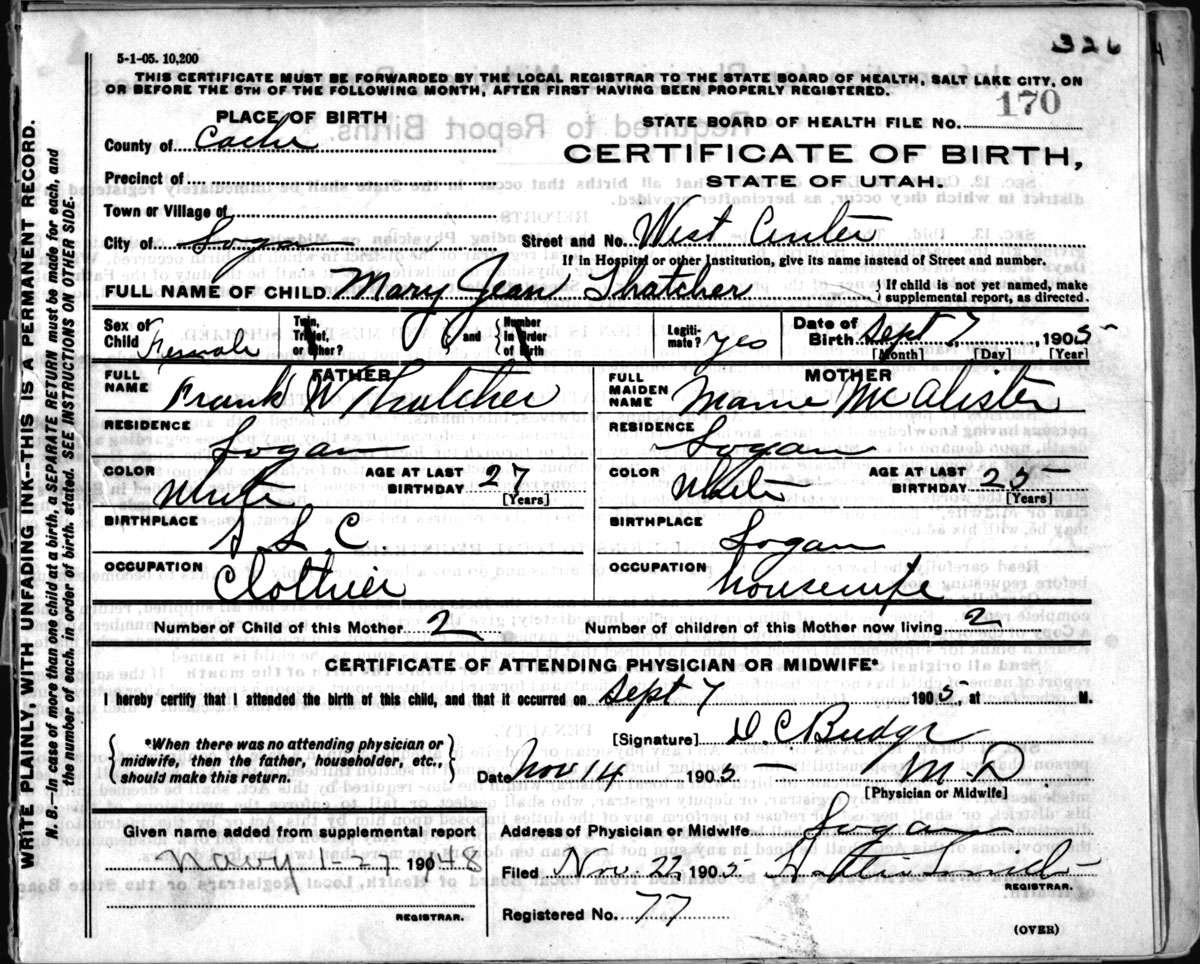 326
5-1-05. 10,200
THIS CERTIFICATE MUST BE FORWARDED BY THE LOCAL REGISTRAR TO THE STATE BOARD OF HEALTH, SALT LAKE CITY, ON
OR BEFORE THE 5TH OF THE FOLLOWING MONTH, AFTER FIRST HAVING BEEN PROPERLY REGISTERED.
PLACE OF BIRTH
STATE BOARD OF HEALTH FILE No. 170
County of Cache
CERTIFICATE OF BIRTH,
Precinct of
STATE OF UTAH.
Town or Village of
City of Logan Street and No. West Center
If in Hospital or other Institution, give its name instead of Street and number.
FULL NAME OF CHILD Mary Jean Thatcher { If child is not yet named, make
supplemental report, as directed.
Sex of Child Female
Twin, Triplet, or other?
and { Number in Order of Birth
Legiti-mate? yes
Date of Birth Sept 7, 1905
[Month] [Day] [Year]
FATHER
FULL NAME Frank W Thatcher
MOTHER
FULL MAIDEN NAME McAlister
RESIDENCE Logan
RESIDENCE Logan
COLOR White AGE AT LAST BIRTHDAY 27 [Years]
COLOR White AGE AT LAST BIRTHDAY 25 [Years]
BIRTHPLACE S L C
BIRTHPLACE Logan
OCCUPATION Clothier
OCCUPATION Housewife
Number of Child of this Mother 2 Number of children of this Mother now living 2
CERTIFICATE OF ATTENDING PHYSICIAN OR MIDWIFE*
I hereby certify that I attended the birth of this child, and that it occurred on Sept 7 1905, at M.
{ *When there was no attending physician or
midwife, then the father, householder, etc.,
should make this return. }
[Signature] D. C. Budge
Date Nov 14 1905 M.D
[Physician or Midwife]
Given name added from supplemental report
Mary 1-27 1948
REGISTRAR.
Address of Physician or Midwife Logan
Filed Nov. 22, 1905 Smith
REGISTRAR.
Registered No. 77
(OVER)
WRITE PLAINLY, WITH UNFADING INK--THIS IS A PERMANENT RECORD.
N. B.--In case of more than one child at a birth, a SEPARATE RETURN must be made for each, and
the number of each, in order of birth, stated. SEE INSTRUCTIONS ON OTHER SIDE.